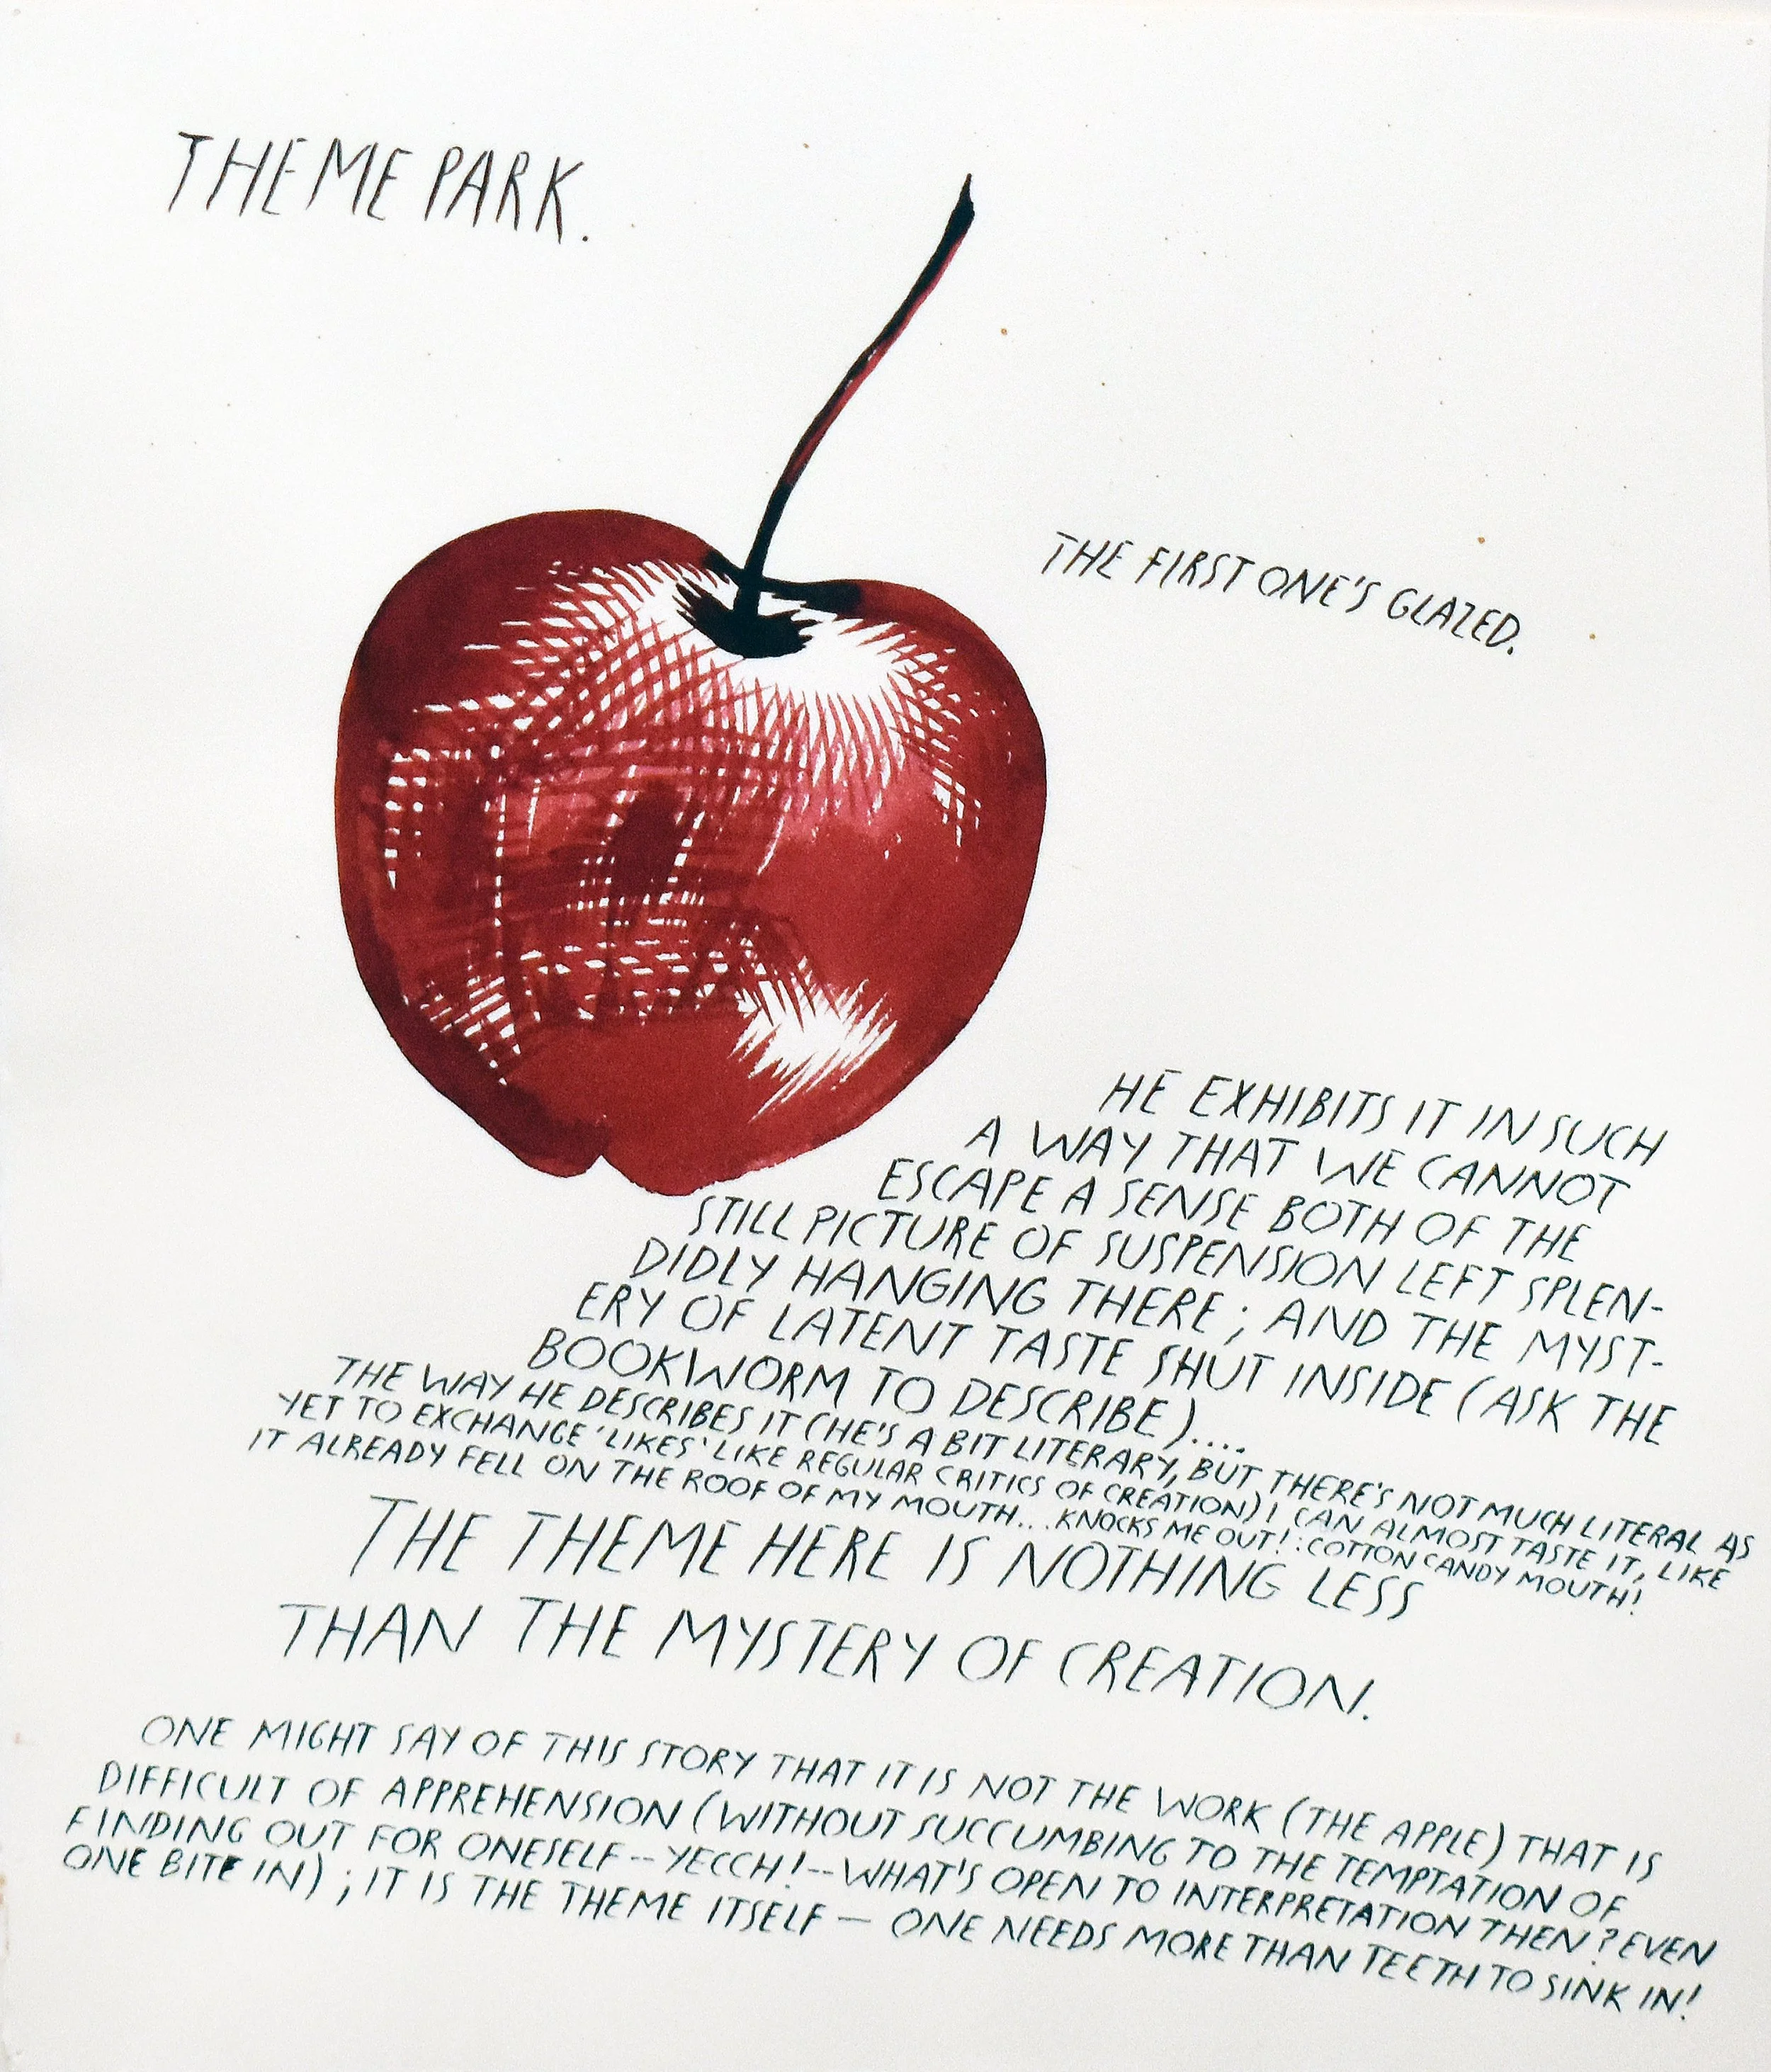 THEME PARK.
THE FIRST ONE'S GLAZED.
HE EXHIBITS IT IN SUCH
A WAY THAT WE CANNOT
ESCAPE A SENSE BOTH OF THE
STILL PICTURE OF SUSPENSION LEFT SPLEN-
DIDLY HANGING THERE; AND THE MYST-
ERY OF LATENT TASTE SHUT INSIDE (ASK THE
BOOKWORM TO DESCRIBE)....
THE WAY HE DESCRIBES IT (HE'S A BIT LITERARY, BUT THERE'S NOT MUCH LITERAL AS
YET TO EXCHANGE 'LIKES' LIKE REGULAR CRITICS OF CREATION) I CAN ALMOST TASTE IT, LIKE
IT ALREADY FELL ON THE ROOF OF MY MOUTH... KNOCKS ME OUT! : COTTON CANDY MOUTH!
THE THEME HERE IS NOTHING LESS
THAN THE MYSTERY OF CREATION.
ONE MIGHT SAY OF THIS STORY THAT IT IS NOT THE WORK (THE APPLE) THAT IS
DIFFICULT OF APPREHENSION (WITHOUT SUCCUMBING TO THE TEMPTATION OF
FINDING OUT FOR ONESELF -- YECCH! -- WHAT'S OPEN TO INTERPRETATION THEN? EVEN
ONE BITE IN); IT IS THE THEME ITSELF — ONE NEEDS MORE THAN TEETH TO SINK IN!